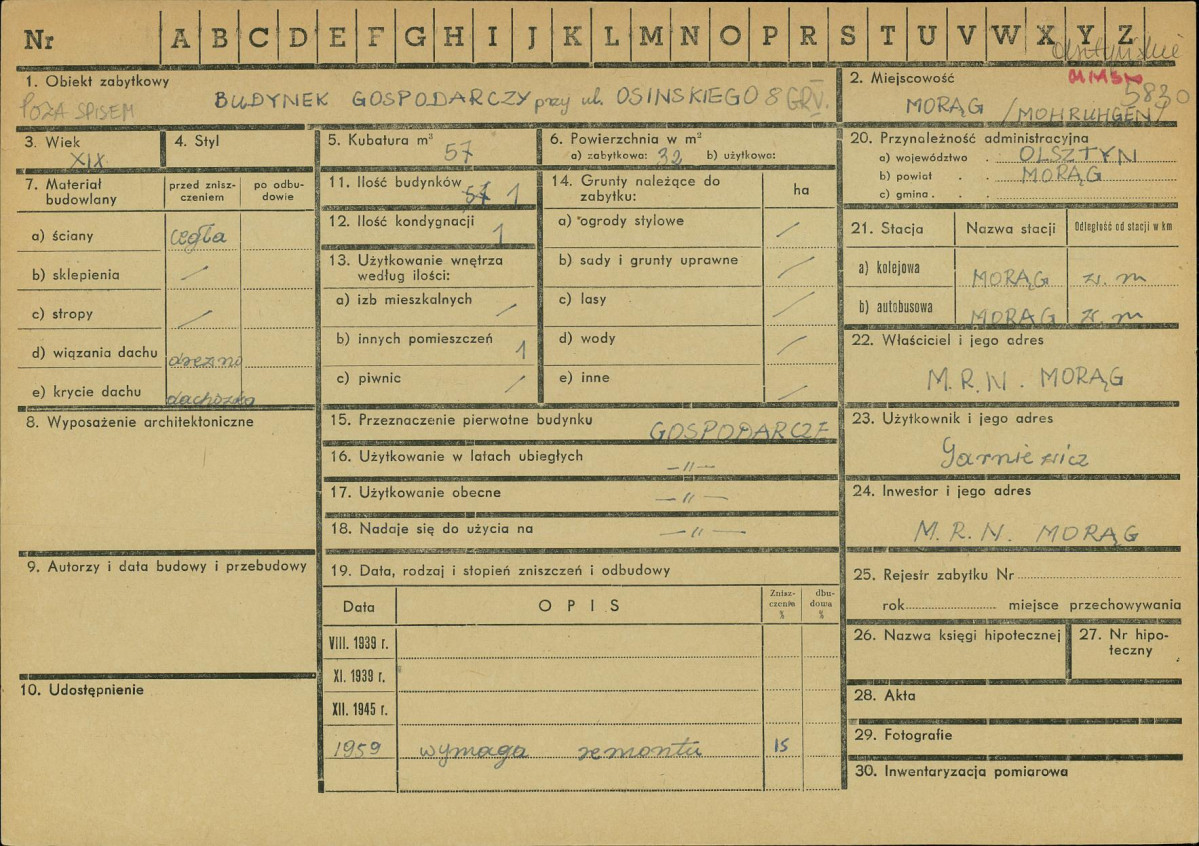 Nr A B C D E F G H I J K L M N O P R S T U V W X Y Z
1. Obiekt zabytkowy
POZA SPISEM
BUDYNEK GOSPODARCZY przy ul. OSIŃSKIEGO 8 GR V.
2. Miejscowość
5830
MORĄG /MOHRUNGEN/
3. Wiek
XIX
4. Styl
5. Kubatura m³
57
6. Powierzchnia w m²
a) zabytkowa: 32 b) użytkowa:
7. Materiał budowlany
przed znisz-
czeniem
po odbu-
dowie
a) ściany cegła
b) sklepienia /
c) stropy /
d) wiązania dachu drewno
e) krycie dachu dachówka
8. Wyposażenie architektoniczne
9. Autorzy i data budowy i przebudowy
10. Udostępnienie
11. Ilość budynków 57 1
12. Ilość kondygnacji 1
13. Użytkowanie wnętrza
według ilości:
a) izb mieszkalnych /
b) innych pomieszczeń 1
c) piwnic /
14. Grunty należące do
zabytku:
ha
a) ogrody stylowe /
b) sady i grunty uprawne /
c) lasy /
d) wody /
e) inne /
15. Przeznaczenie pierwotne budynku GOSPODARCZE
16. Użytkowanie w latach ubiegłych —"—
17. Użytkowanie obecne —"—
18. Nadaje się do użycia na —"—
19. Data, rodzaj i stopień zniszczeń i odbudowy
Data
OPIS
Znisz-
czenia
%
dbu-
dowa
%
VIII. 1939 r.
XI. 1939 r.
XII. 1945 r.
1959 wymaga remontu 15
20. Przynależność administracyjna
a) województwo . OLSZTYN
b) powiat . . MORĄG
c) gmina . . .
21. Stacja
Nazwa stacji
Odległość od stacji w km
a) kolejowa MORĄG w. m
b) autobusowa MORĄG w. m
22. Właściciel i jego adres
M.R.N. MORĄG
23. Użytkownik i jego adres
24. Inwestor i jego adres
M.R.N. MORĄG
25. Rejestr zabytku Nr
rok miejsce przechowywania
26. Nazwa księgi hipotecznej
27. Nr hipo-
teczny
28. Akta
29. Fotografie
30. Inwentaryzacja pomiarowa